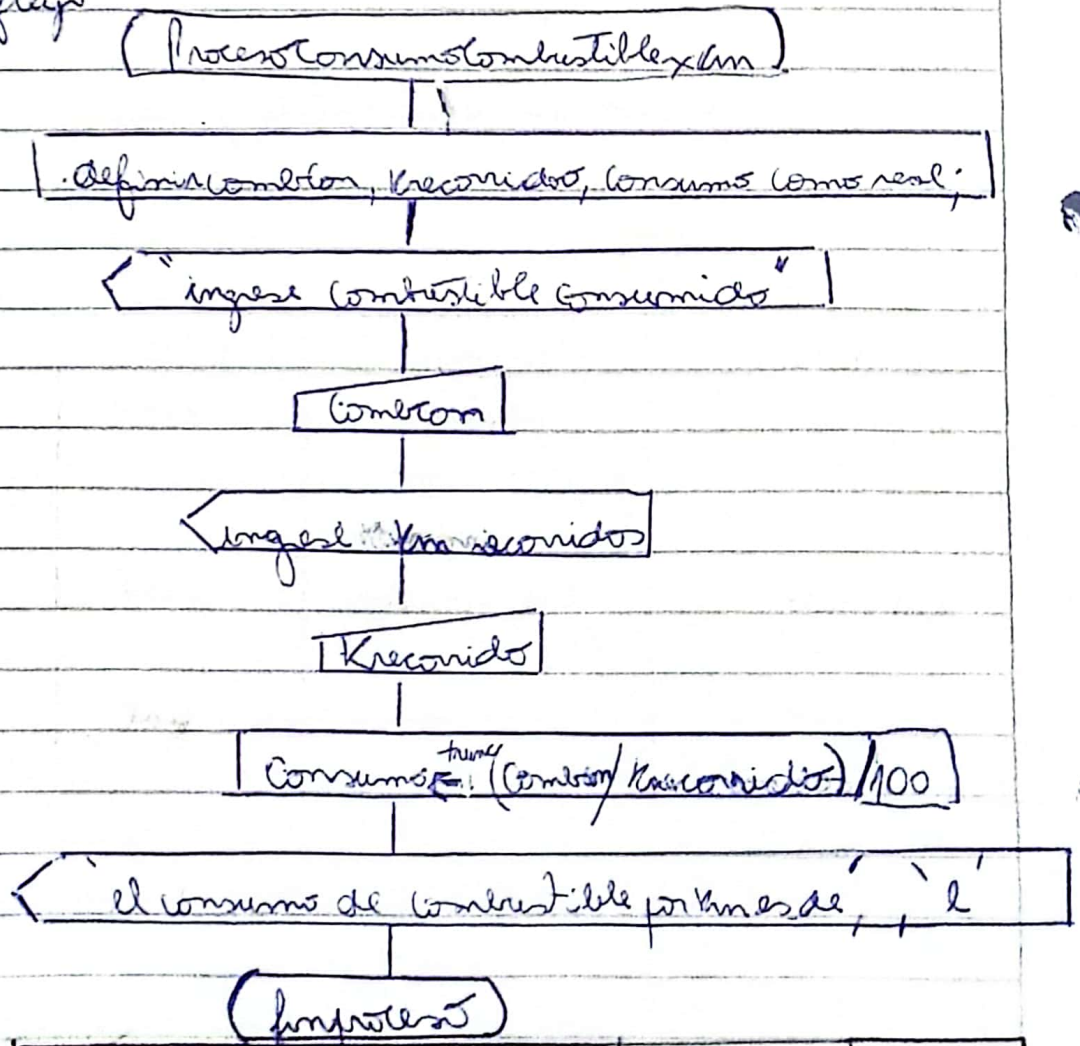 ProcesoConsumoCombustiblexkm
definir combcon, krecorrido, consumo como real;
"ingrese combustible consumido"
Combcon
ingrese km recorridos
Krecorrido
trunc
Consumo ← (Combcon/krecorrido)/100
`el consumo de combustible por km es de´, , `l´
finproceso